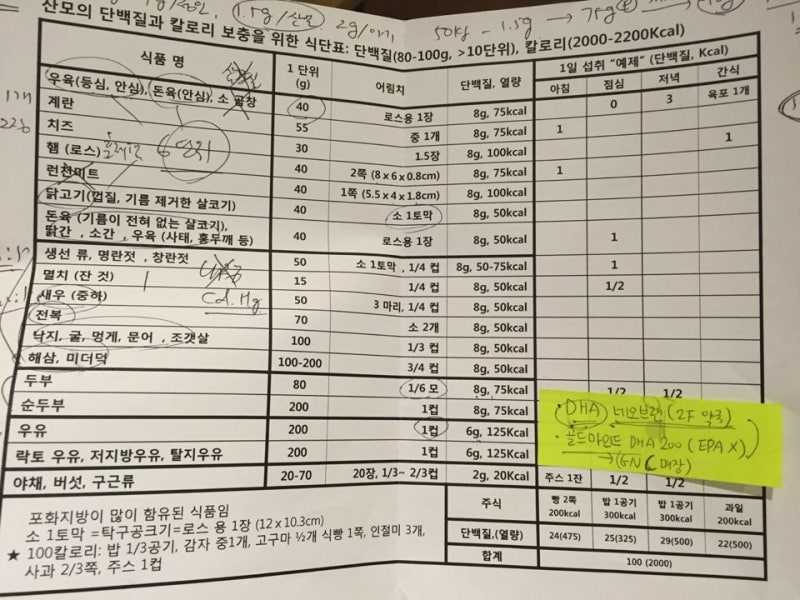 1.5g/산모 2g/아기 50kg - 1.5g → 75g
산모의 단백질과 칼로리 보충을 위한 식단표: 단백질(80-100g, >10단위), 칼로리(2000-2200Kcal)
식품 명 1 단위 (g) 어림치 단백질, 열량 1일 섭취 "예제" (단백질, Kcal)
아침 점심 저녁 간식
우육(등심, 안심), 돈육(안심), 소 곱창 40 로스용 1장 8g, 75kcal 0 3 육포 1개
계란 55 중 1개 8g, 75kcal 1
치즈 30 1.5장 8g, 100kcal 1
햄 (로스) 40 2쪽 (8 x 6 x 0.8cm) 8g, 75kcal 1
런천미트 40 1쪽 (5.5 x 4 x 1.8cm) 8g, 100kcal
닭고기(껍질, 기름 제거한 살코기) 40 소 1토막 8g, 50kcal
돈육 (기름이 전혀 없는 살코기),
닭간 , 소간 , 우육 (사태, 홍두깨 등) 40 로스용 1장 8g, 50kcal 1
생선 류, 명란젓 , 창란젓 50 소 1토막 , 1/4 컵 8g, 50-75kcal 1
멸치 (잔 것) 15 1/4 컵 8g, 50kcal 1/2
새우 (중하) 50 3 마리, 1/4 컵 8g, 50kcal
Cd. Hg
전복 70 소 2개 8g, 50kcal
낙지, 굴, 멍게, 문어 , 조갯살 100 1/3 컵 8g, 50kcal
해삼, 미더덕 100-200 3/4 컵 8g, 50kcal
두부 80 1/6 모 8g, 75kcal 1/2 1/2
순두부 200 1컵 8g, 75kcal
우유 200 1컵 6g, 125Kcal
락토 우유, 저지방우유, 탈지우유 200 1컵 6g, 125Kcal
야채, 버섯, 구근류 20-70 20장, 1/3~ 2/3컵 2g, 20Kcal 주스 1잔 1/2 1/2
· DHA 네오브랜 (2F 약국)
· 골드마인드 DHA 200 (EPA X)
→ (GNC 매장)
주식 빵 2쪽 200kcal 밥 1공기 300kcal 밥 1공기 300kcal 과일 200kcal
단백질,(열량) 24(475) 25(325) 29(500) 22(500)
합계 100 (2000)
포화지방이 많이 함유된 식품임
소 1토막 =탁구공크기=로스 용 1장 (12 x 10.3cm)
★ 100칼로리: 밥 1/3공기, 감자 중1개, 고구마 ½개 식빵 1쪽, 인절미 3개,
사과 2/3쪽, 주스 1컵